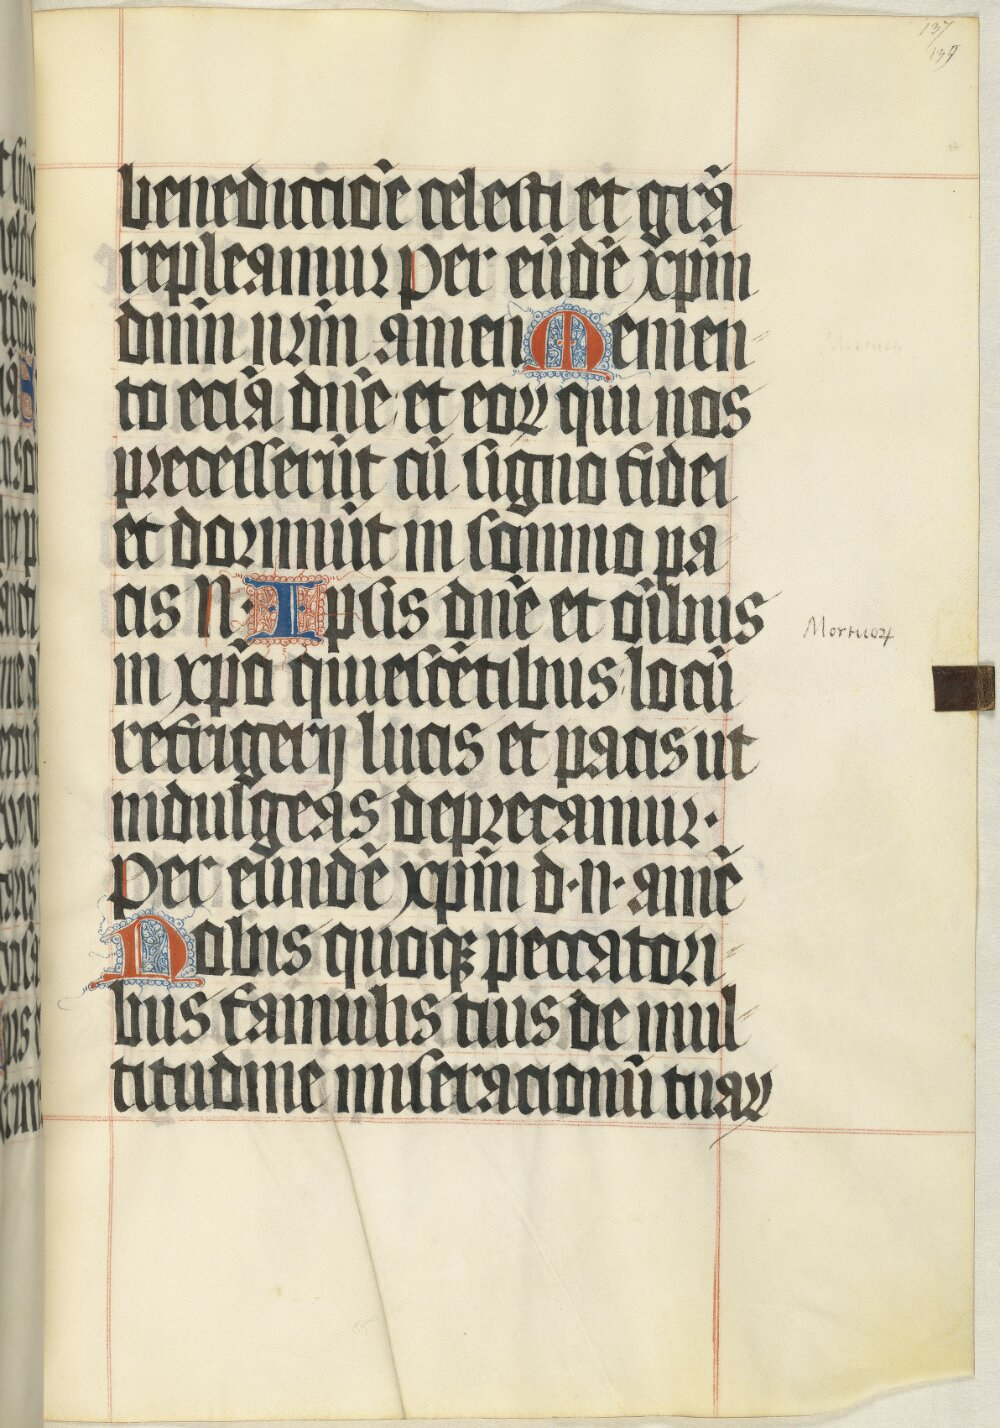 137
139
benediccioē celesti et grā
repleamur Per eūdē xp̄m
dnm̄ nr̄m amen Memen
to eciā dn̄e et eoꝝ qui nos
precesserūt cū signo fidei
et dormiūt in sōmno pa
cis N· Ipsis dn̄e et oībus
in xp̄o quiescētibus locū
refrigerij lucis et pacis ut
Mortuoꝝ
indulgeas deprecamur·
Per eundē xp̄m d·n· amē
Nobis quoqꝫ peccatori
bus famulis tuis de mul
titudine miseracionū tuaꝝ